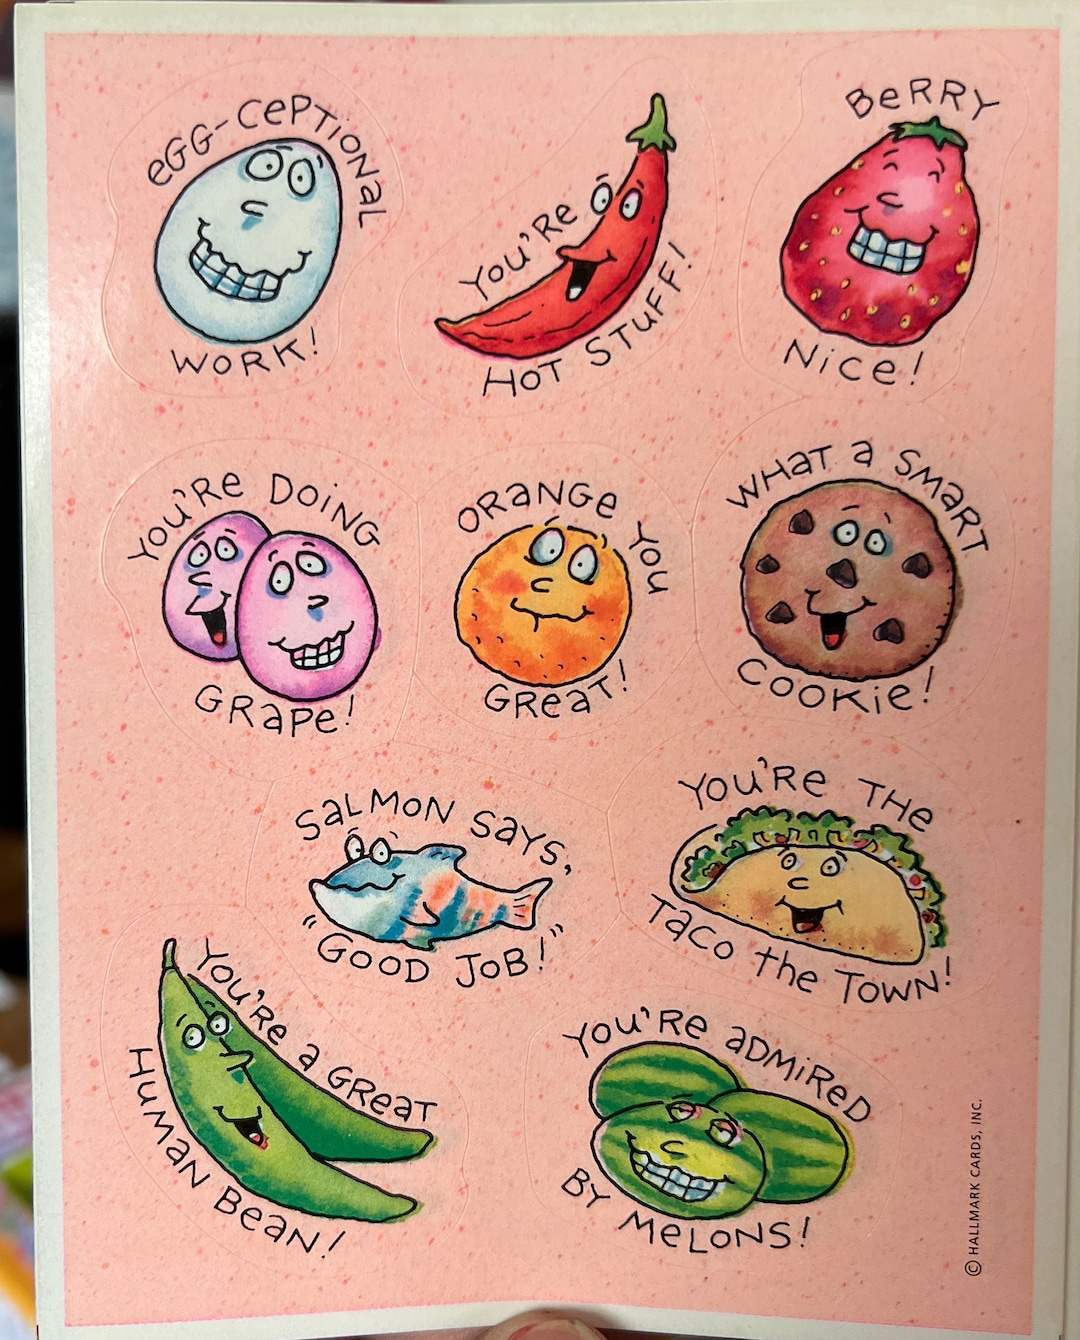 eGG-CePTiONaL
WORK!
YOU'Re
HOT STUFF!
BeRRY
Nice!
YOU'Re DOiNG
GRaPe!
ORaNGe YOU
GReaT!
WHaT a SMaRT
COOKie!
SaLMON SaYS,
"GOOD JOB!"
YOU'Re THe
Taco the TOWN!
YOU'Re a GReaT
HUMaN BeaN!
YOU'Re aDMiReD
BY MeLONS!
© HALLMARK CARDS, INC.